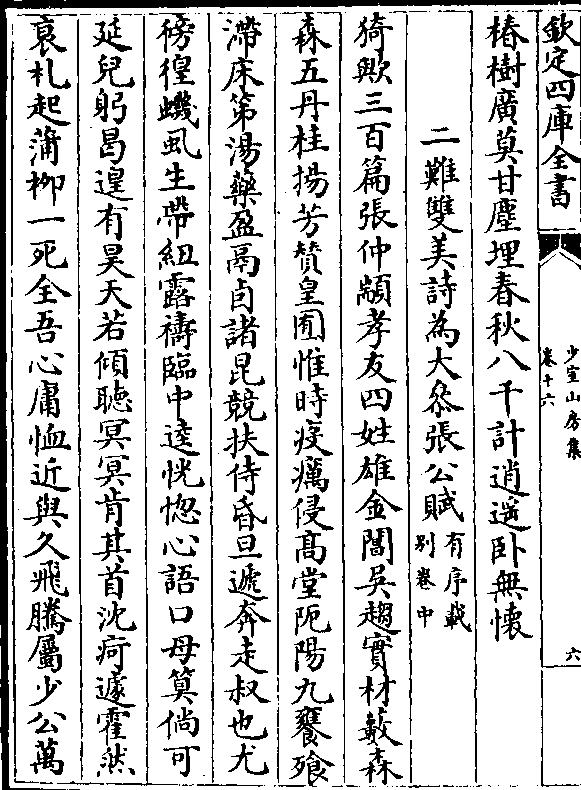 欽定四庫全書
少室山房集
卷十六
六
椿樹廣莫甘塵埋春秋八千計逍遥卧無懷
二難雙美詩為大叅張公賦有序載别卷中
猗歟三百篇張仲顓孝友四姓雄金閶吳趨實材藪森
森五丹桂揚芳贊皇囿惟時疫癘侵髙堂阨陽九饔飱
滯床笫湯藥盈鬲卣諸昆競扶侍昏旦遞奔走叔也尤
徬徨蟣虱生帶紐露禱臨中逵恍惚心語口母算倘可
延兒躬曷遑有昊天若傾聽冥冥肯其首沈疴遽霍然
哀札起蒲柳一死全吾心庸恤近與久飛騰屬少公萬